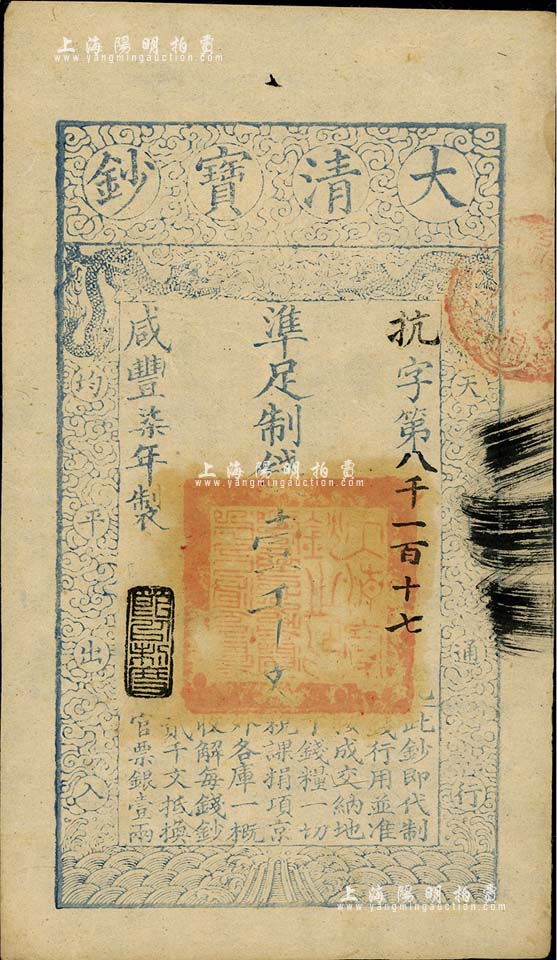 上海陽明拍賣
www.yangmingauction.com
大清寶鈔
天
通
行
抗字第八千一百十七
準足制錢壹千文
咸豐柒年製
均
平
出
入
此鈔即代制
行用並准
成交納地
錢糧一切
稅課捐項京
外各庫一概
收解每錢鈔
貳千文抵換
官票銀壹兩
上海陽明拍賣
www.yangmingauction.com
上海陽明拍賣
www.yangmingauction.com